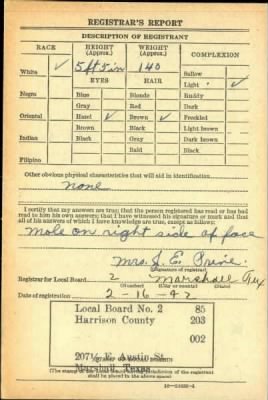 REGISTRAR'S REPORT
DESCRIPTION OF REGISTRANT
RACE HEIGHT (Approx.) WEIGHT (Approx.) COMPLEXION
White ✓ 5 ft 5 in 140 Sallow
EYES HAIR Light ✓
Negro Blue Blonde Ruddy
Gray Red Dark
Oriental Hazel ✓ Brown ✓ Freckled
Brown Black Light brown
Indian Black Gray Dark brown
Bald Black
Filipino
Other obvious physical characteristics that will aid in identification
none
I certify that my answers are true; that the person registered has read or has had
read to him his own answers; that I have witnessed his signature or mark and that
all of his answers of which I have knowledge are true, except as follows:
mole on right side of face
Mrs. J. E. Prine.
(Signature of registrar)
Registrar for Local Board 2 Marshall Tex
(Number) (City or county) (State)
Date of registration 2-16-42
Local Board No. 2 85
Harrison County 203
002
207½ E. Austin St.
Marshall, Texas
(The stamp of the Local Board having jurisdiction of the registrant
shall be placed in the above space)